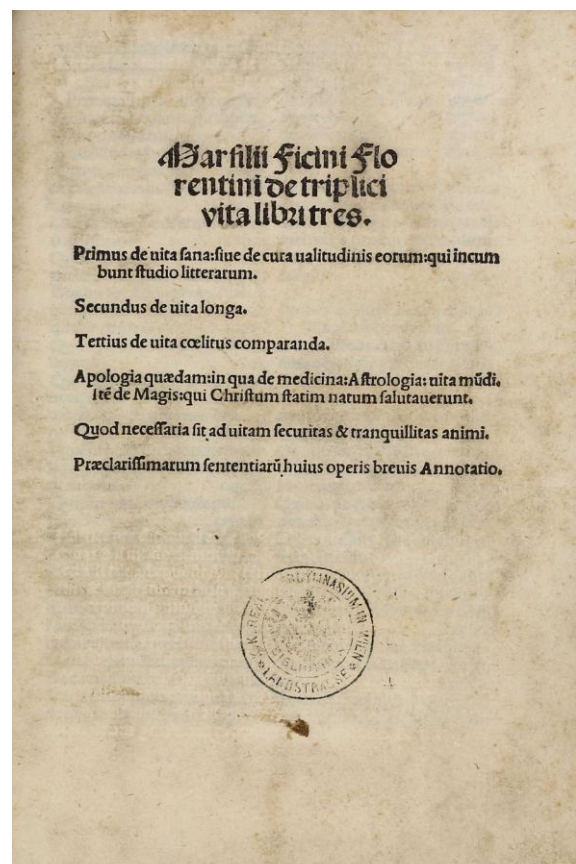 Marsilii Ficini Flo
rentini de triplici
vita libri tres.
Primus de uita sana:siue de cura ualitudinis eorum:qui incum
bunt studio litterarum.
Secundus de uita longa.
Tertius de uita cœlitus comparanda.
Apologia quædam:in qua de medicina:Astrologia:uita mūdi.
Itē de Magis:qui Christum statim natum salutauerunt.
Quod necessaria sit ad uitam securitas & tranquillitas animi.
Præclarissimarum sententiarū huius operis breuis Annotatio.
K.K. REAL GYMNASIUM IN WIEN
LANDSTRASSE